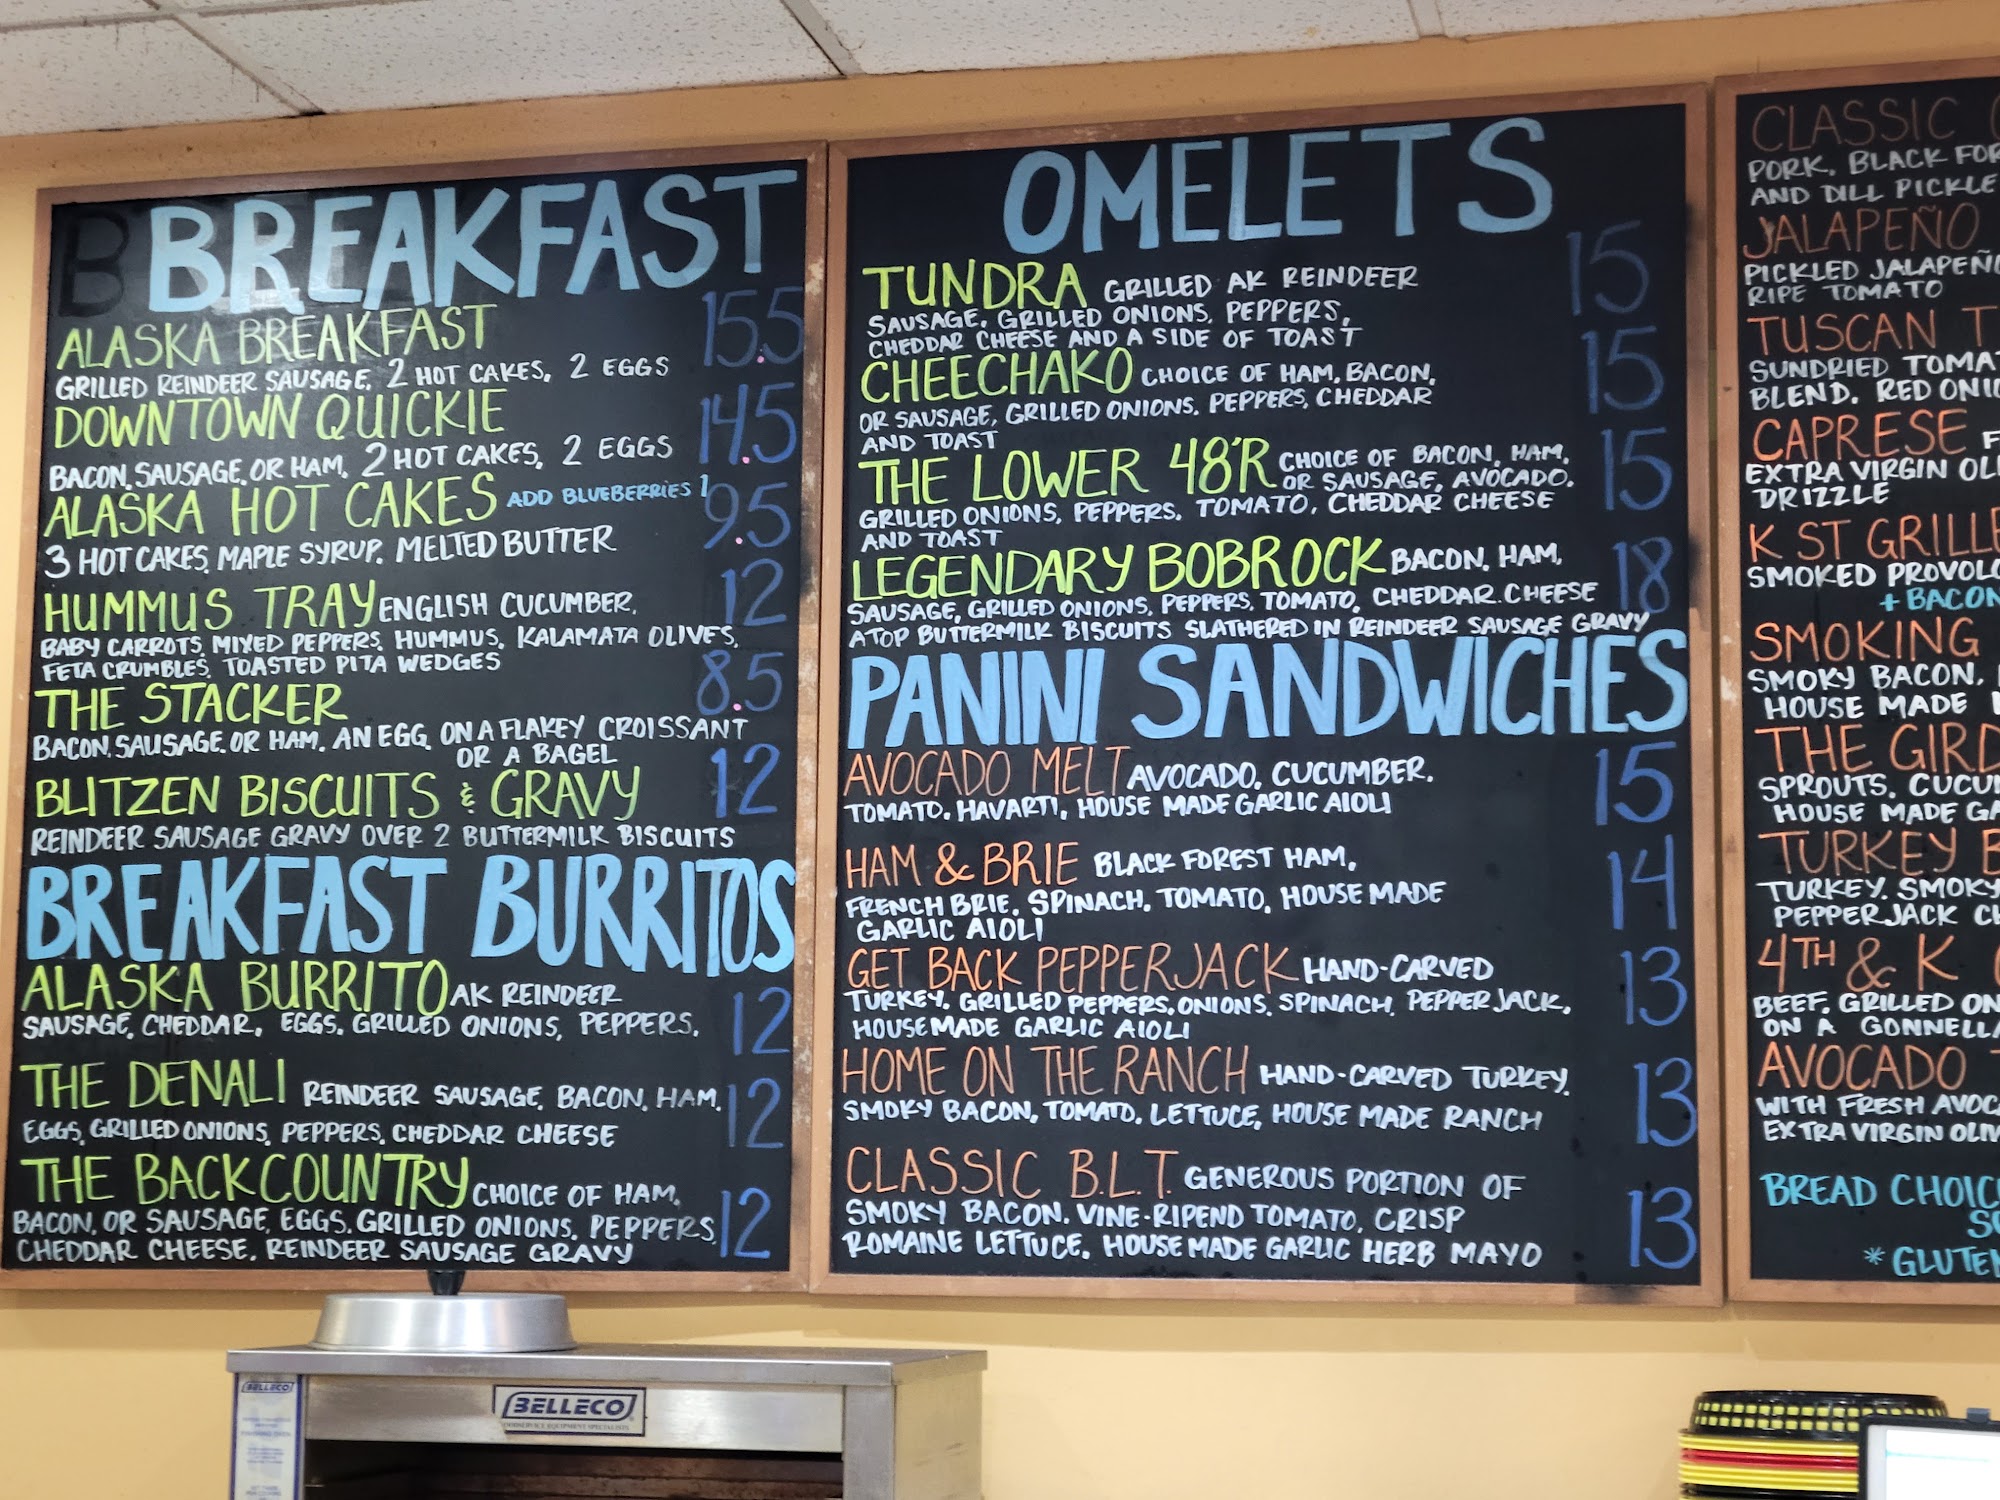 BREAKFAST
ALASKA BREAKFAST 15.5
GRILLED REINDEER SAUSAGE, 2 HOT CAKES, 2 EGGS
DOWNTOWN QUICKIE 14.5
BACON, SAUSAGE, OR HAM, 2 HOT CAKES, 2 EGGS
ALASKA HOT CAKES ADD BLUEBERRIES 1 9.5
3 HOT CAKES, MAPLE SYRUP, MELTED BUTTER
HUMMUS TRAY ENGLISH CUCUMBER, 12
BABY CARROTS, MIXED PEPPERS, HUMMUS, KALAMATA OLIVES,
FETA CRUMBLES, TOASTED PITA WEDGES
THE STACKER 8.5
BACON, SAUSAGE, OR HAM, AN EGG, ON A FLAKEY CROISSANT
OR A BAGEL
BLITZEN BISCUITS & GRAVY 12
REINDEER SAUSAGE GRAVY OVER 2 BUTTERMILK BISCUITS
BREAKFAST BURRITOS
ALASKA BURRITO AK REINDEER 12
SAUSAGE, CHEDDAR, EGGS, GRILLED ONIONS, PEPPERS,
THE DENALI REINDEER SAUSAGE, BACON, HAM, 12
EGGS, GRILLED ONIONS, PEPPERS, CHEDDAR CHEESE
THE BACKCOUNTRY CHOICE OF HAM, 12
BACON, OR SAUSAGE, EGGS, GRILLED ONIONS, PEPPERS,
CHEDDAR CHEESE, REINDEER SAUSAGE GRAVY
OMELETS
TUNDRA GRILLED AK REINDEER 15
SAUSAGE, GRILLED ONIONS, PEPPERS,
CHEDDAR CHEESE AND A SIDE OF TOAST
CHEECHAKO CHOICE OF HAM, BACON, 15
OR SAUSAGE, GRILLED ONIONS, PEPPERS, CHEDDAR
AND TOAST
THE LOWER 48'R CHOICE OF BACON, HAM, 15
OR SAUSAGE, AVOCADO,
GRILLED ONIONS, PEPPERS, TOMATO, CHEDDAR CHEESE
AND TOAST
LEGENDARY BOBROCK BACON, HAM, 18
SAUSAGE, GRILLED ONIONS, PEPPERS, TOMATO, CHEDDAR CHEESE
ATOP BUTTERMILK BISCUITS SLATHERED IN REINDEER SAUSAGE GRAVY
PANINI SANDWICHES
AVOCADO MELT AVOCADO, CUCUMBER, 15
TOMATO, HAVARTI, HOUSE MADE GARLIC AIOLI
HAM & BRIE BLACK FOREST HAM, 14
FRENCH BRIE, SPINACH, TOMATO, HOUSE MADE
GARLIC AIOLI
GET BACK PEPPERJACK HAND-CARVED 13
TURKEY, GRILLED PEPPERS, ONIONS, SPINACH, PEPPER JACK,
HOUSEMADE GARLIC AIOLI
HOME ON THE RANCH HAND-CARVED TURKEY, 13
SMOKY BACON, TOMATO, LETTUCE, HOUSE MADE RANCH
CLASSIC B.L.T. GENEROUS PORTION OF 13
SMOKY BACON, VINE-RIPEND TOMATO, CRISP
ROMAINE LETTUCE, HOUSE MADE GARLIC HERB MAYO
CLASSIC
PORK, BLACK FOR
AND DILL PICKLE
JALAPEÑO
PICKLED JALAPEÑ
RIPE TOMATO
TUSCAN T
SUNDRIED TOMA
BLEND, RED ONI
CAPRESE F
EXTRA VIRGIN OL
DRIZZLE
K ST GRILLE
SMOKED PROVOLO
+ BACON
SMOKING
SMOKY BACON,
HOUSE MADE
THE GIRD
SPROUTS, CUCU
HOUSE MADE GA
TURKEY B
TURKEY, SMOKY
PEPPERJACK C
4TH & K
BEEF, GRILLED ON
ON A GONNELLA
AVOCADO
WITH FRESH AVOC
EXTRA VIRGIN OLIV
BREAD CHOIC
SO
* GLUTEN
BELLECO
FOODSERVICE EQUIPMENT SPECIALISTS
BELLECO